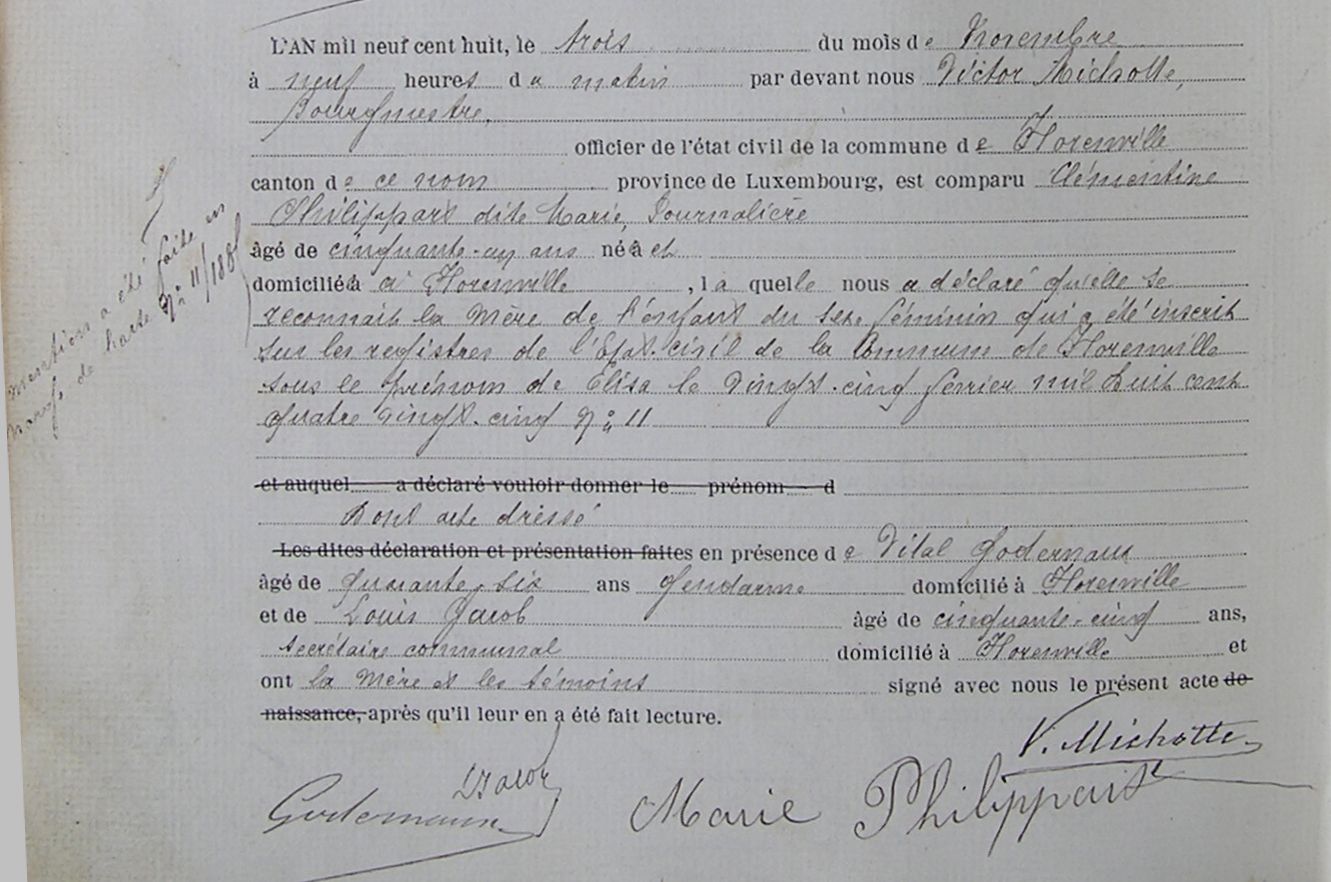 L'AN mil neuf cent huit, le trois du mois de Novembre
à neuf heures du matin par devant nous Victor Michotte,
Bourgmestre,
officier de l'état civil de la commune de Florenville
canton de ce nom province de Luxembourg, est comparu Clémentine
Philippart dite Marie, Journalière
âgé de cinquante-un ans né à et
domicilié à à Florenville, laquelle nous a déclaré qu'elle se
reconnait la Mère de l'enfant du sexe féminin qui a été inscrit
sur les registres de l'Etat-civil de la Commune de Florenville
sous le prénom de Elisa le Vingt-cinq février mil huit cent
quatre Vingt-cinq N° 11
et auquel a déclaré vouloir donner le prénom d
Dont acte dressé
Les dites déclaration et présentation faites en présence de Vital Godernaux
âgé de quarante-six ans Gendarme domicilié à Florenville
et de Louis Jacob âgé de cinquante-cinq ans,
secrétaire communal domicilié à Florenville et
ont la Mère et les témoins signé avec nous le présent acte de
naissance, après qu'il leur en a été fait lecture.
mention a été faite en
marge de l'acte N° 11/1885
V. Michotte
L Jacob
Marie Philippart